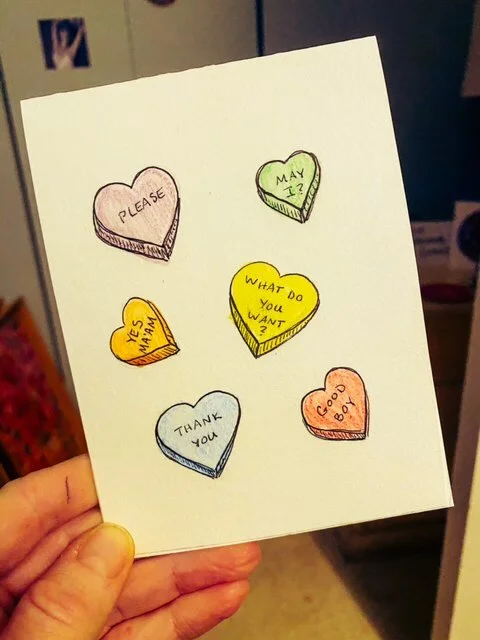 PLEASE
MAY
I?
YES,
MA'AM
WHAT DO
YOU
WANT
?
THANK
YOU
GOOD
BOY